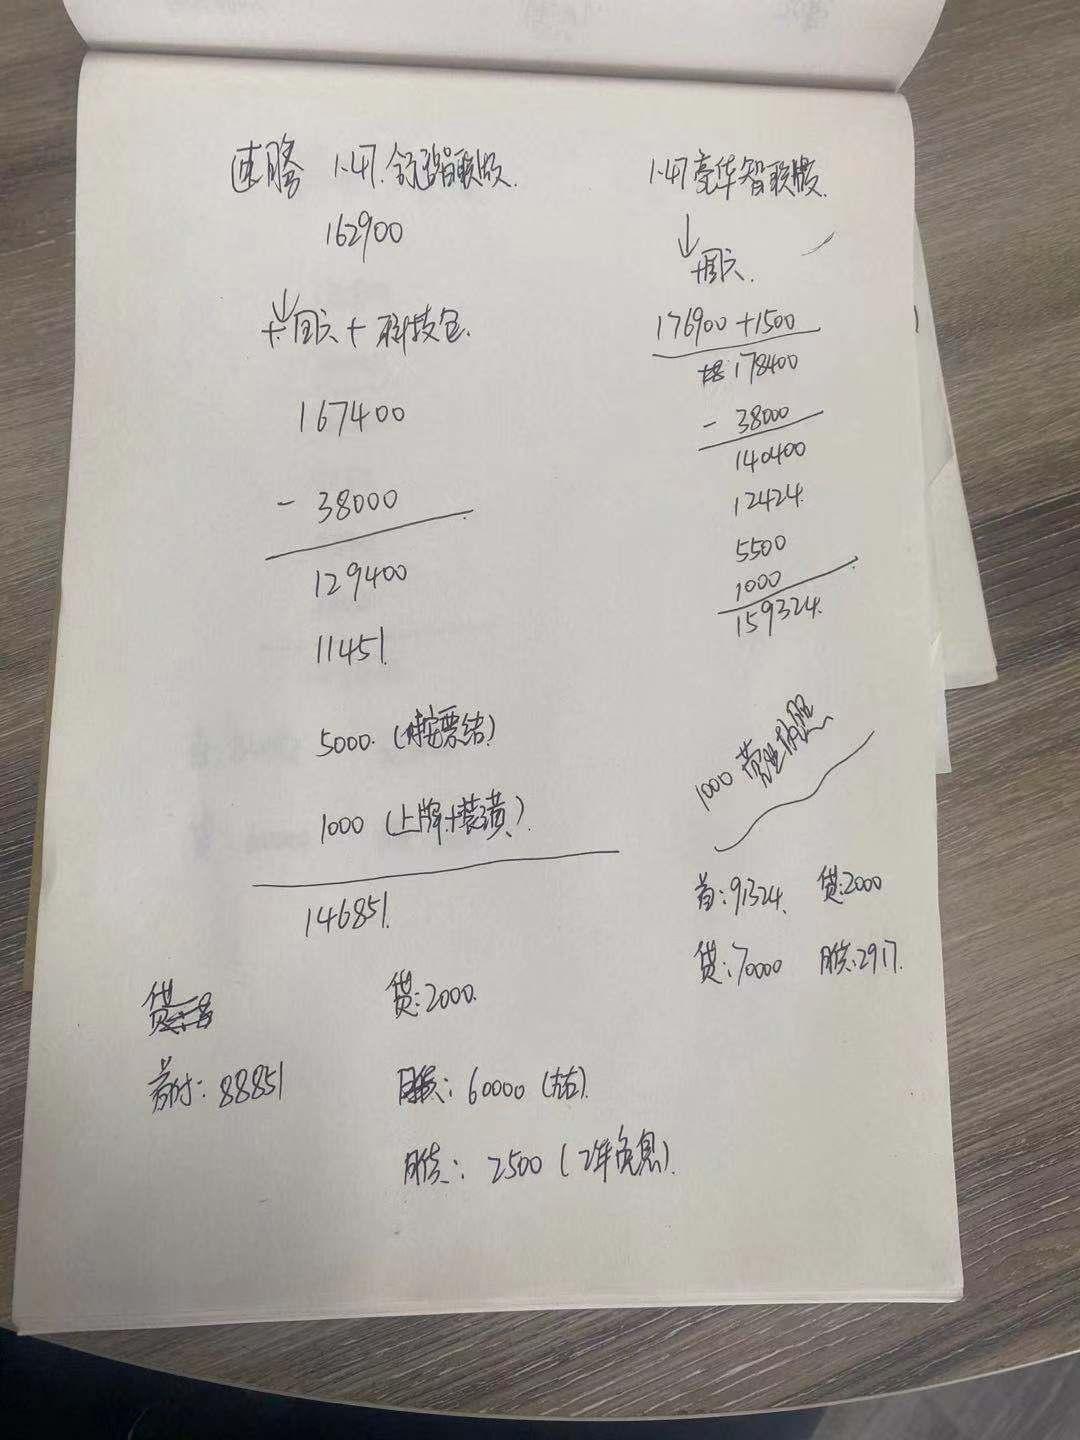 速腾 1.4T 舒适智联版.
162900
↓
+国六+科技包.
167400
- 38000
129400
11451.
5000.(保按票结)
1000(上牌+装潢).
146851.
贷:2000.
首付:88851
60000(左右).
月供:2500(2年免息).
1.4T豪华智联版.
↓
+国六.
176900+1500
178400
- 38000
140400
12424.
5500
1000
159324.
1000 营业执照
首:91324. 贷:2000
贷:70000 月供:2917.